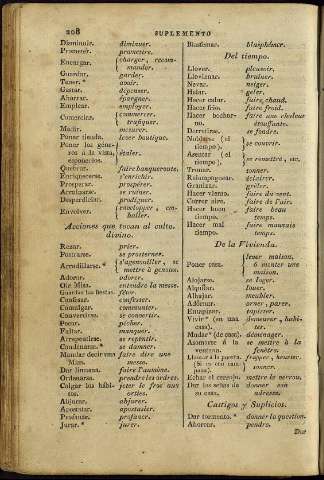 208 SUPLEMENTO
Disminuir. diminuer.
Prometer. promettre.
Encargar. charger, recom-
mander.
Guardar. garder.
Tener.* avoir.
Gastar. dépenser.
Ahorrar. épargner.
Emplear. employer.
Comerciar. commercer,
trafiquer.
Medir. mesurer.
Poner tienda. lever boutique.
Poner los géne-
ros á la vista, étaler.
exponerlos.
Quebrar. faire banqueroute.
Enriquecerse. s'enrichir.
Prosperar. prospérer.
Arruinarse. se ruiner.
Desperdiciar. prodiguer.
Envolver. envelopper, em-
baller.
Acciones que tocan al culto
divino.
Rezar. prier.
Postrarse. se prosterner.
Arrodillarse.* s'agenouiller, se
mettre à genoux.
Adorar. adorer.
Oir Misa. entendre la messe.
Guardar las fiestas. fêter.
Confesar. confesser.
Comulgar. communier.
Convertirse. se convertir.
Pecar. pécher.
Faltar. manquer.
Arrepentirse. se repentir.
Condenarse.* se damner.
Mandar decir una faire dire une
Misa. messe.
Dar limosna. faire l'aumône.
Ordenarse. prendre les ordres.
Colgar los hábi- jeter le froc aux
tos. orties.
Abjurar. abjurer.
Apostatar. apostasier.
Profanar. profaner.
Jurar.* jurer.
Blasfemar. blasphémer.
Del tiempo.
Llover. pleuvoir.
Lloviznar. bruiner.
Nevar. neiger.
Helar. geler.
Hacer calor. faire chaud.
Hacer frio. faire froid.
Hacer bochor- faire une chaleur
no. étouffante.
Derretirse. se fondre.
Nublarse (el
tiempo). se couvrir.
Asentar (el
tiempo). se remettre, etc.
Tronar. tonner.
Relampaguear. éclairer.
Granizar. grêler.
Hacer viento. faire du vent.
Correr aire. faire de l'air.
Hacer buen faire beau
tiempo. temps.
Hacer mal faire mauvais
tiempo. temps.
De la Vivienda.
Poner casa. louer maison,
maison.
Alojarse. se loger.
Alquilar. louer.
Alhajar. meubler.
Aderezar. orner, parer.
Entapizar. tapisser.
Vivir* (en una demeurer, habi-
casa). ter.
Mudar* (de casa). déménager.
Asomarse á la se mettre à la
ventana. fenêtre.
Llamar á la puerta. frapper, heurter,
sonner.
Echar el cerrojo. mettre le verrou.
Dar las señas de donner son
su casa. adresse.
Castigos y Suplicios.
Dar tormento.* donner la question.
Ahorcar. pendre.
Dar